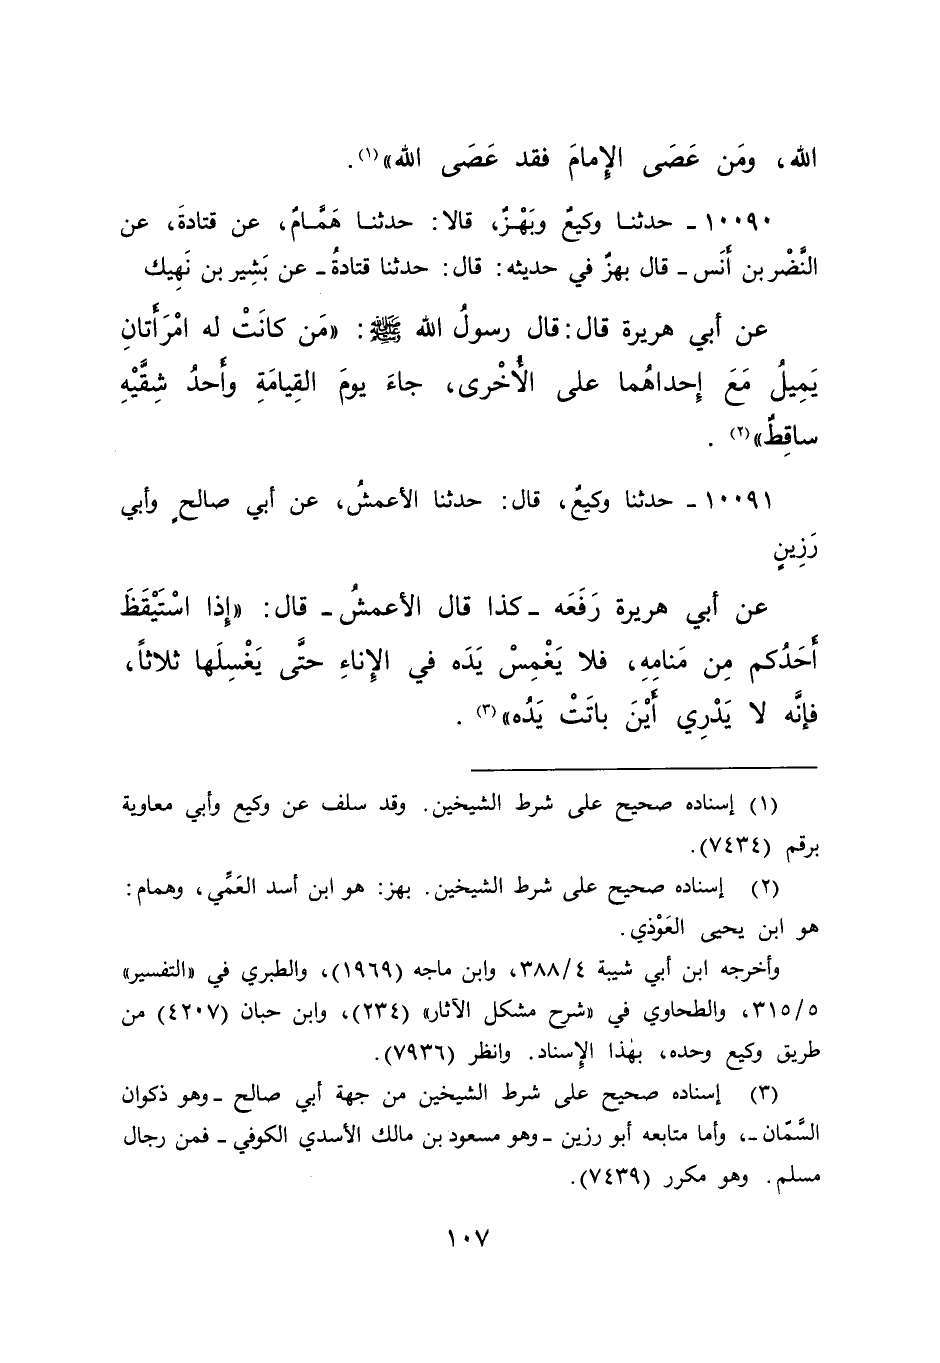 الله، ومَن عَصَى الإِمامَ فقد عَصَى الله»(١).
١٠٠٩٠ ـ حدثنـا وكيعٌ وبَهْـزٌ، قالا: حدثنـا هَمَّـامٌ، عن قتادةَ، عن
النَّضْر بن أَنَس ـ قال بهزٌ في حديثه: قال: حدثنا قتادةُ ـ عن بَشِير بن نَهِيك
عن أبي هريرة قال: قال رسولُ الله ﷺ: «مَن كانَتْ له امْرَأَتانِ
يَمِيلُ مَعَ إِحداهُما على الأُخْرى، جاءَ يومَ القِيامَةِ وأَحدُ شِقَّيْهِ
ساقِطٌ»(٢) .
١٠٠٩١ ـ حدثنا وكيعٌ، قال: حدثنا الأعمشُ، عن أبي صالحٍ وأبي
رَزِينٍ
عن أبي هريرة رَفَعَه ـ كذا قال الأعمشُ ـ قال: «إِذا اسْتَيْقَظَ
أَحَدُكم مِن مَنامِهِ، فلا يَغْمِسْ يَدَه في الإِناءِ حتَّى يَغْسِلَها ثلاثاً،
فإنَّه لا يَدْرِي أَيْنَ باتَتْ يَدُه»(٣) .
(١) إسناده صحيح على شرط الشيخين. وقد سلف عن وكيع وأبي معاوية
برقم (٧٤٣٤).
(٢) إسناده صحيح على شرط الشيخين. بهز: هو ابن أسد العَمِّي، وهمام:
هو ابن يحيى العَوْذي.
وأخرجه ابن أبي شيبة ٣٨٨/٤، وابن ماجه (١٩٦٩)، والطبري في «التفسير»
٣١٥/٥، والطحاوي في «شرح مشكل الآثار» (٢٣٤)، وابن حبان (٤٢٠٧) من
طريق وكيع وحده، بهٰذا الإِسناد. وانظر (٧٩٣٦).
(٣) إسناده صحيح على شرط الشيخين من جهة أبي صالح ـ وهو ذكوان
السَّمّان ـ، وأما متابعه أبو رزين ـ وهو مسعود بن مالك الأسدي الكوفي ـ فمن رجال
مسلم. وهو مكرر (٧٤٣٩).
١٠٧